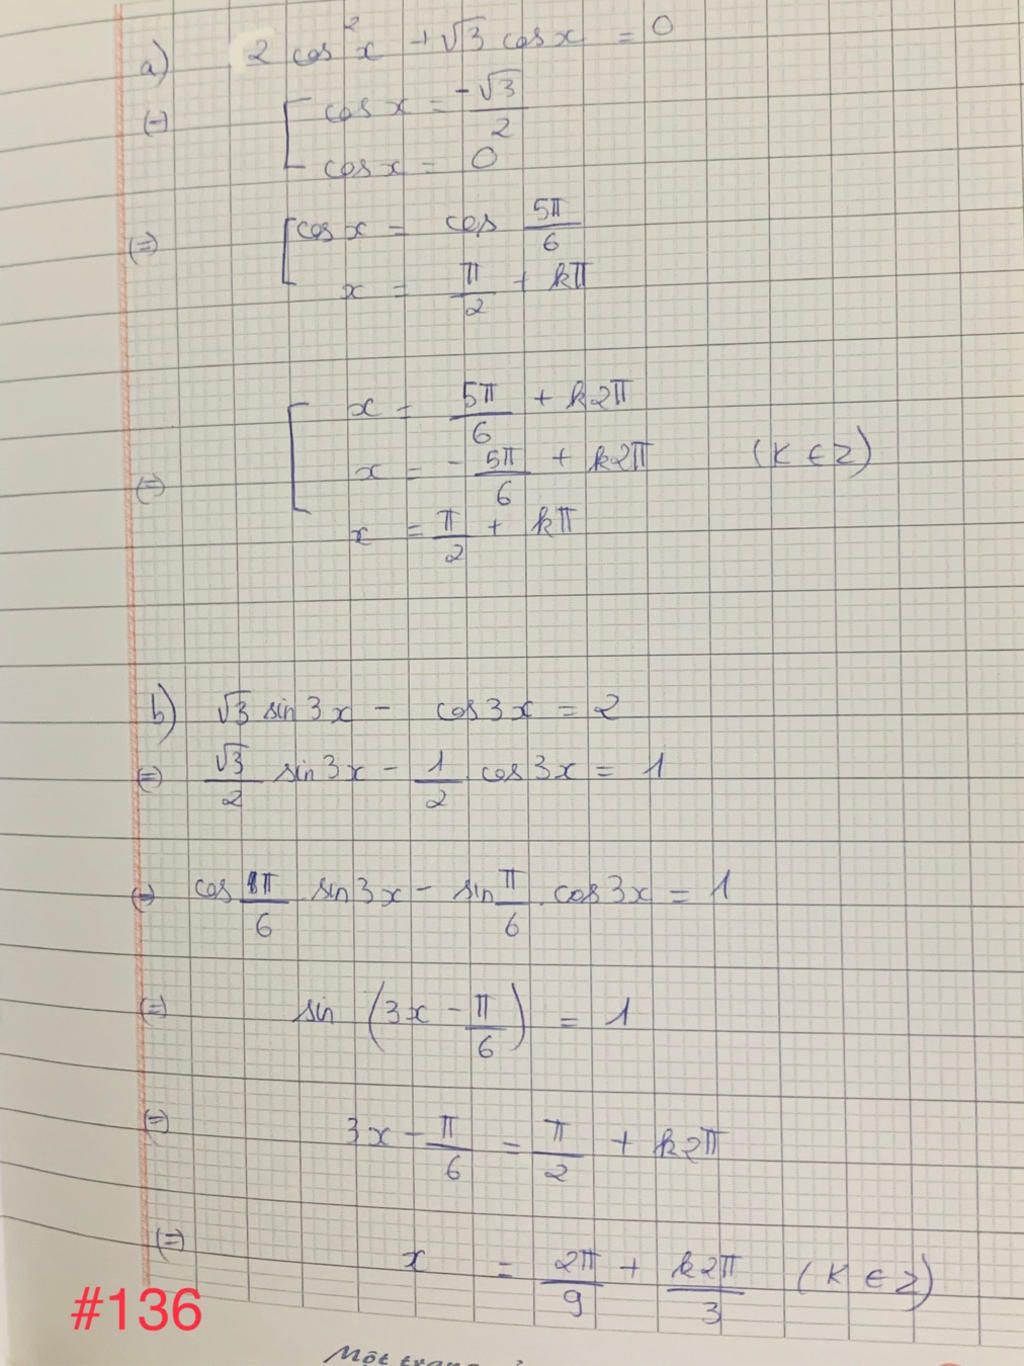 a) 2 cos²x + √3 cosx = 0
(-) [ cosx = -√3/2
cosx = 0
(=) [ cosx = cos 5π/6
x = π/2 + kπ
[ x = 5π/6 + k2π
(=) x = - 5π/6 + k2π (K ∈ Z)
x = π/2 + kπ
b) √3 sin3x - cos3x = 2
(=) √3/2 sin3x - 1/2 cos3x = 1
(=) cos π/6 . sin3x - sin π/6 . cos3x = 1
(=) sin (3x - π/6) = 1
(=) 3x - π/6 = π/2 + k2π
(=) x = 2π/9 + k2π/3 (K ∈ Z)
#136
Một trang